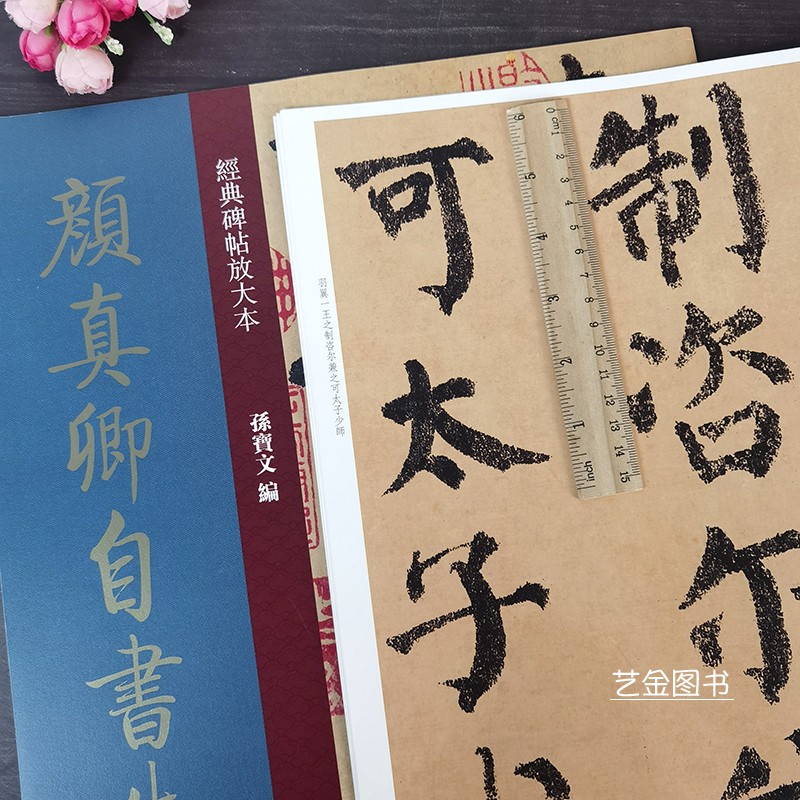 顔真卿自書
經典碑帖放大本
孫寶文 編
制咨尔
可太子
羽翼一王之制咨尔兼之可太子少師
0 cm 1 2 3 4 5 6 7 8 9 10 11 12 13 14 15
inch 1 2 3 4 5 6
艺金图书